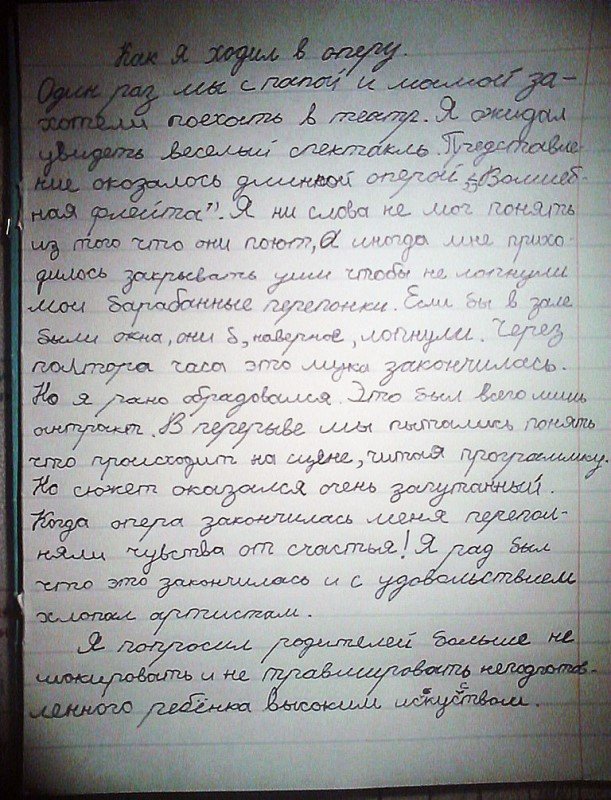 Как я ходил в оперу.
Один раз мы с папой и мамой за-
хотели поехать в театр. Я ожидал
увидеть веселый спектакль. Представле-
ние оказалось длинной оперой „Волшеб-
ная флейта". Я ни слова не мог понять
из того что они поют, а иногда мне прихо-
дилось закрывать уши чтобы не лопнули
мои барабанные перепонки. Если бы в зале
были окна, они б, наверное, лопнули. Через
полтора часа это мука закончилась.
Но я рано обрадовался. Это был всего лишь
антракт. В перерыве мы пытались понять
что происходит на сцене, читая программку.
Но сюжет оказался очень запутанный.
Когда опера закончилась меня перепол-
няли чувства от счастья! Я рад был
что это закончилась и с удовольствием
хлопал артистам.
Я попросил родителей больше не
шокировать и не травмировать неподготов-
ленного ребёнка высоким искуством.